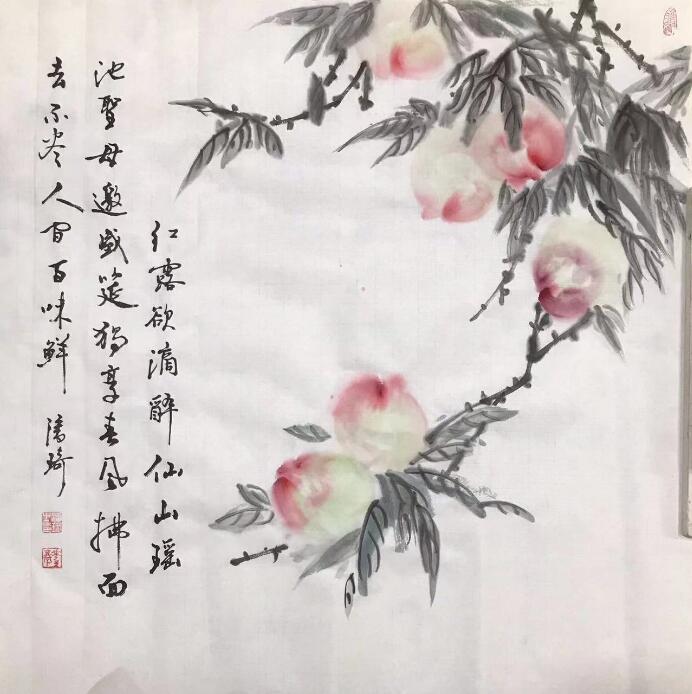 红露欲滴醉仙山瑶
池圣母邀盛筵独享春风拂面
去不尽人间百味鲜 琦